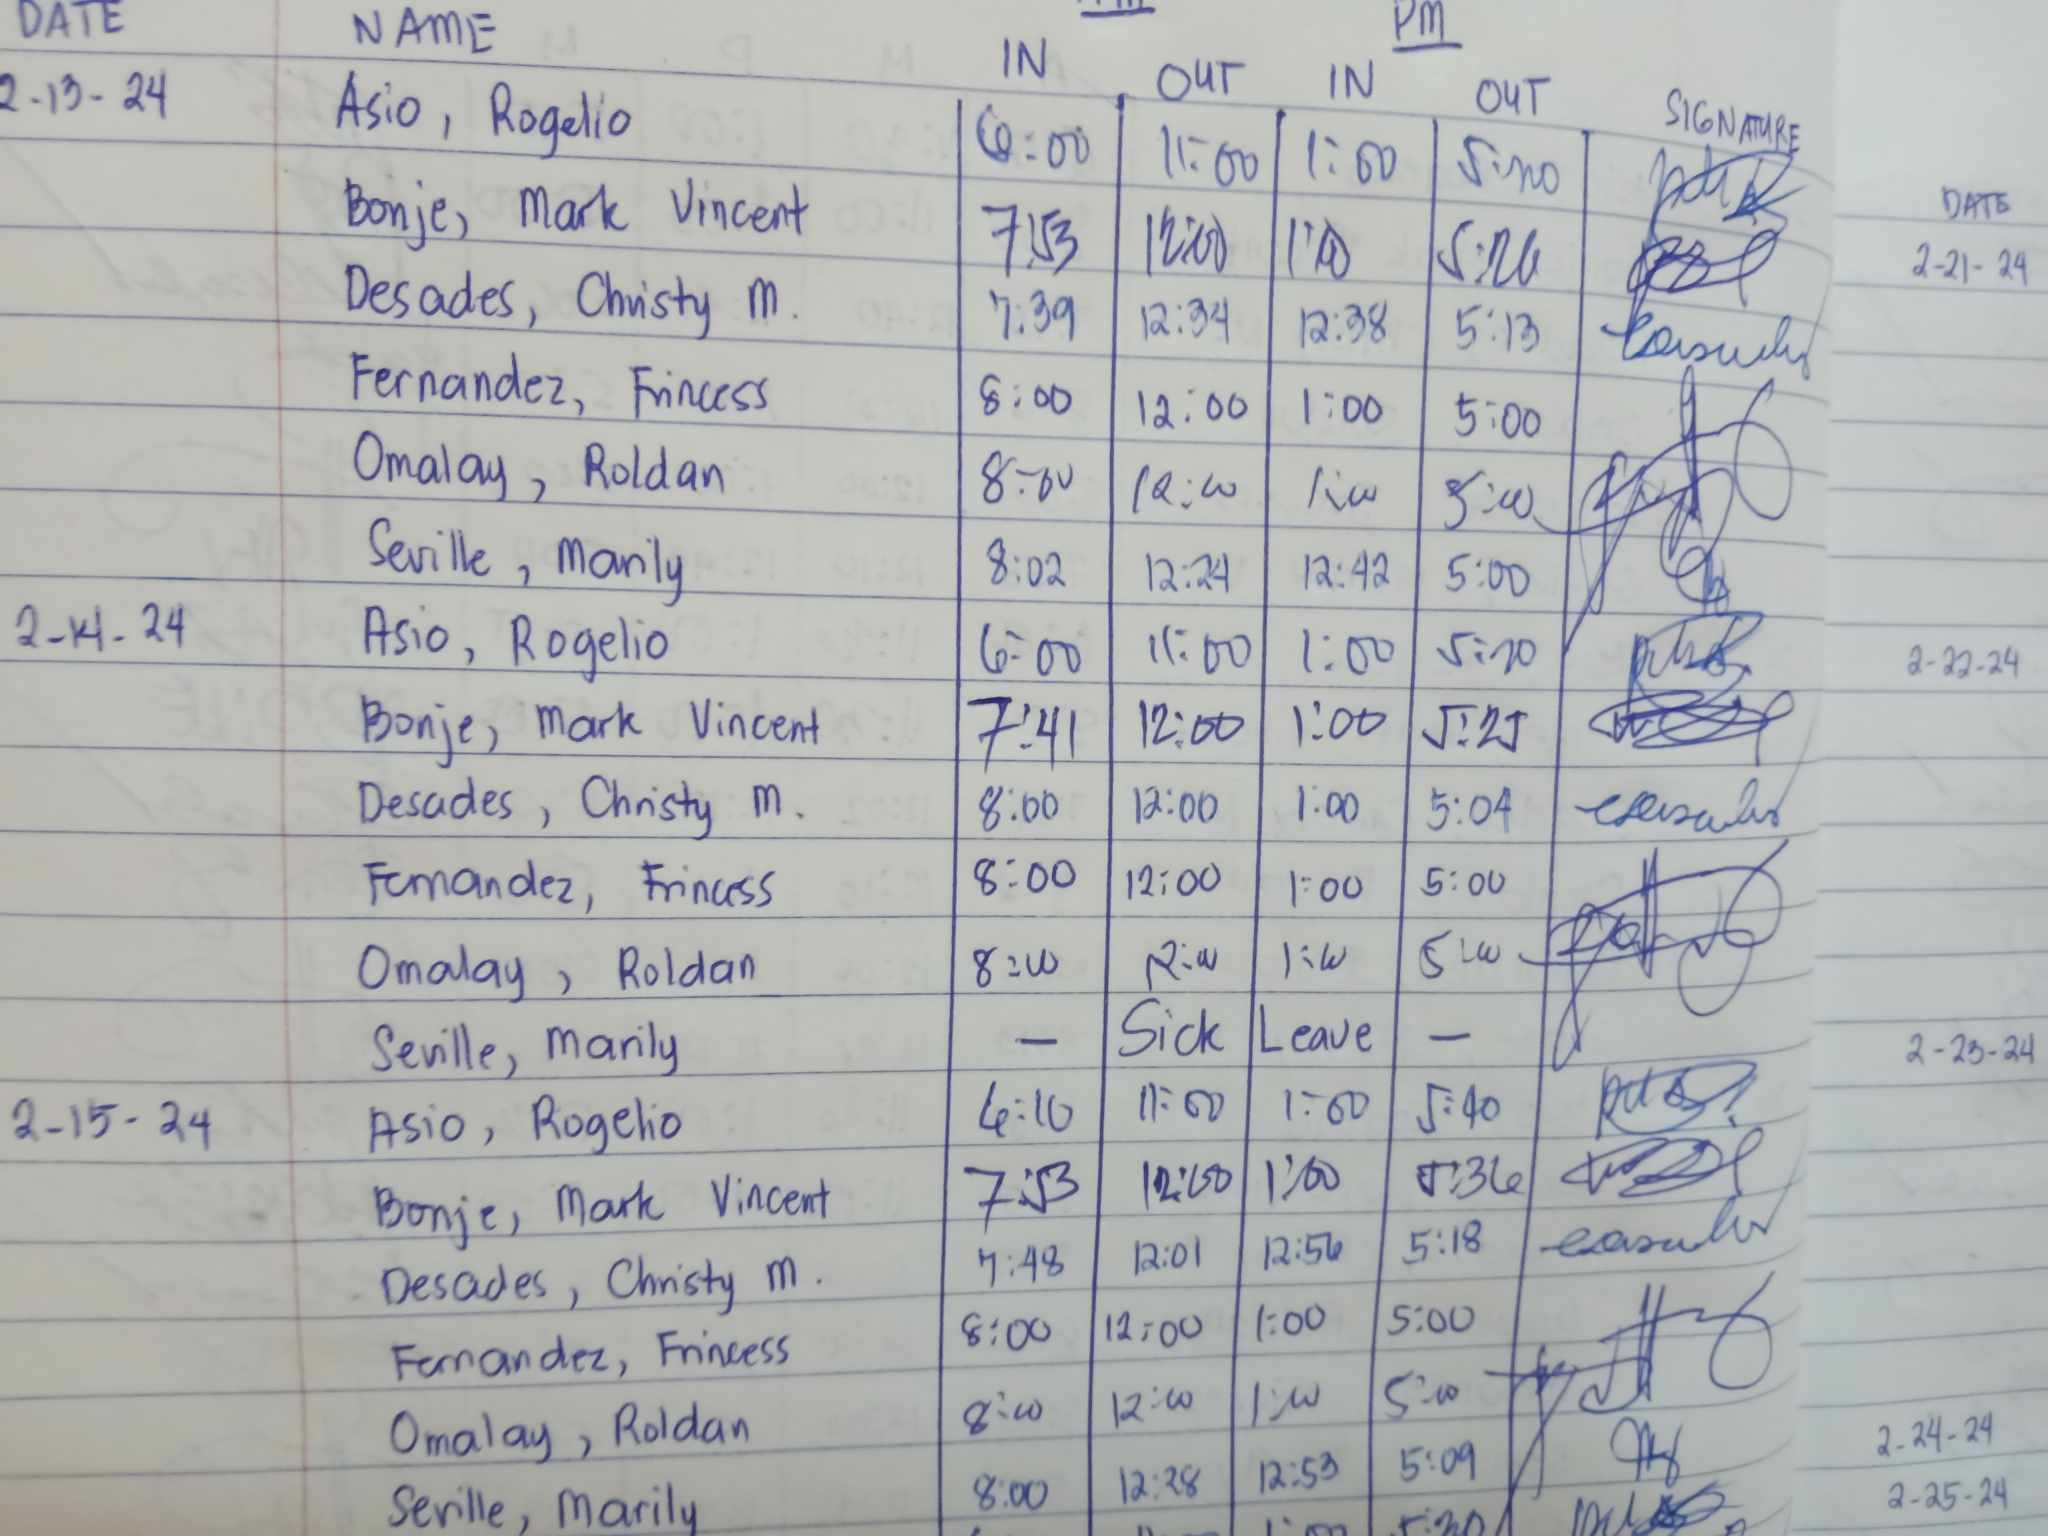 PM
DATE NAME IN OUT IN OUT SIGNATURE
2-13-24 Asio, Rogelio 6:00 11:00 1:00
Bonje, Mark Vincent 7:53 12:00 1:00 5:26
Desades, Christy M. 7:39 12:34 12:38 5:13
Fernandez, Frincess 8:00 12:00 1:00 5:00
Omalay, Roldan 8:00 12:00 1:00 5:00
Seville, Marily 8:02 12:24 12:42 5:00
2-14-24 Asio, Rogelio 6:00 11:00 1:00
Bonje, Mark Vincent 7:41 12:00 1:00 5:25
Desades, Christy M. 8:00 12:00 1:00 5:04
Fernandez, Frincess 8:00 12:00 1:00 5:00
Omalay, Roldan 8:00 12:00 1:00 5:00
Seville, Marily — Sick Leave —
2-15-24 Asio, Rogelio 6:10 11:00 1:00 5:40
Bonje, Mark Vincent 7:53 12:00 1:00 5:36
Desades, Christy M. 7:48 12:01 12:56 5:18
Fernandez, Frincess 8:00 12:00 1:00 5:00
Omalay, Roldan 8:00 12:00 1:00 5:00
Seville, Marily 8:00 12:28 12:53 5:09
DATE
2-21-24
2-22-24
2-23-24
2-24-24
2-25-24